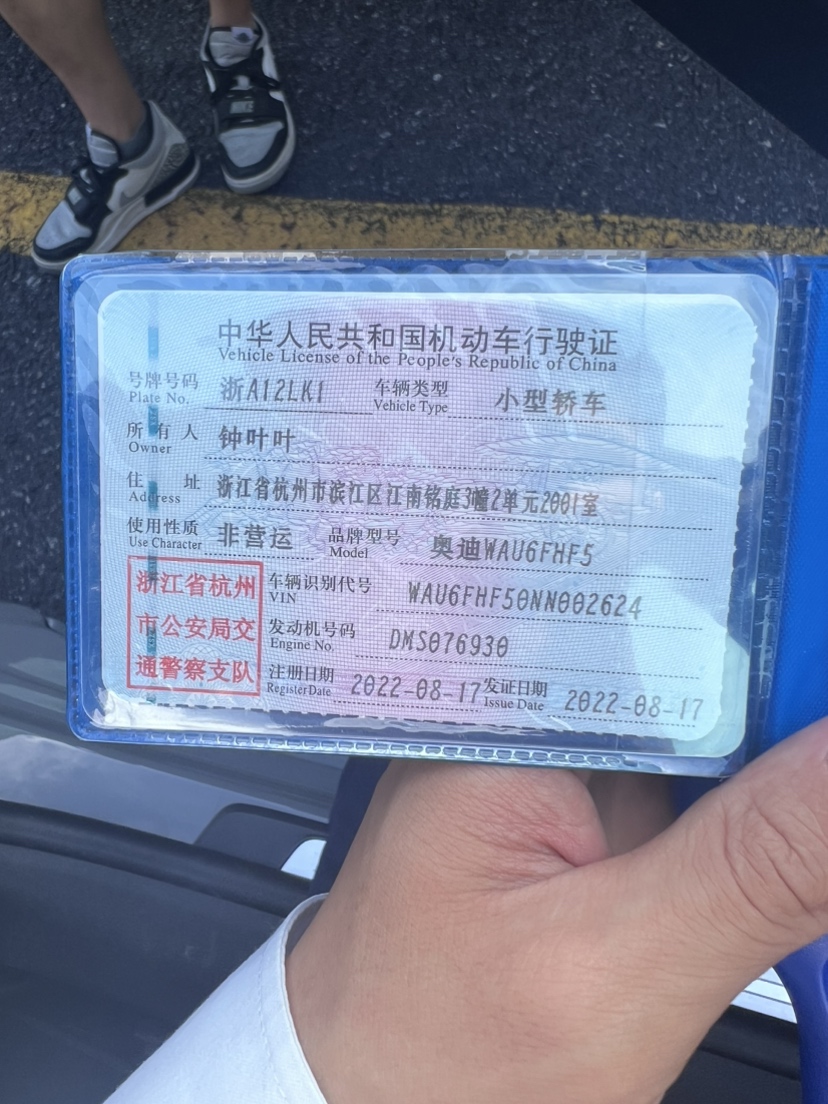 中华人民共和国机动车行驶证
Vehicle License of the People's Republic of China
号牌号码 浙A12LK1 车辆类型 小型轿车
Plate No. Vehicle Type
所有人 钟叶叶
Owner
住址 浙江省杭州市滨江区江南铭庭3幢2单元2001室
Address
使用性质 非营运 品牌型号 奥迪WAU6FHF5
Use Character Model
浙江省杭州
市公安局交
通警察支队
车辆识别代号 WAU6FHF50NN002624
VIN
发动机号码 DMS076930
Engine No.
注册日期 2022-08-17 发证日期 2022-08-17
Register Date Issue Date